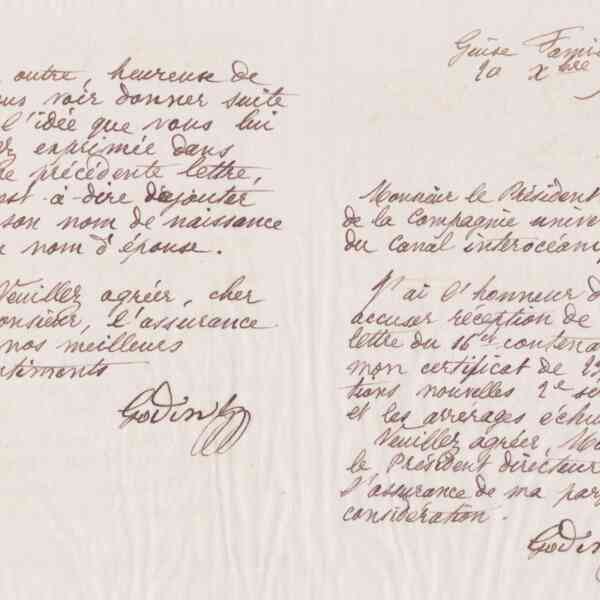 outre, heureuse de
vous voir donner suite
l'idée que vous lui
exprimée dans
précédente lettre,
est-à-dire d'ajouter
son nom de naissance
nom d'épouse.
Veuillez agréer, cher
monsieur, l'assurance
nos meilleurs
sentiments
Godin
Guise Famil
20 Xbre
Monsieur le Président
de la Compagnie univer
du Canal interocéani
J'ai l'honneur d
accuser réception de
lettre du 16 ct contena
mon certificat de
tions nouvelles 2e sé
et les arrérages échu
Veuillez agréer, Mo
le Président directeur
l'assurance de ma par
considération.
Godin